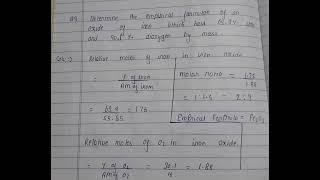 Determine the empirical formula of an
oxide of iron which has 69.9% iron
and 30.1% dioxygen by mass.
Relative moles of iron in iron oxide
= % of iron
AM of iron
= 69.9 = 1.25
55.85
molar ratio = 1.25
1.88
= 1:1.5 = 2:3
Empirical Formula = Fe₂O₃
Relative moles of O₂ in iron oxide
= % of O₂ = 30.1 = 1.88
AM of O₂